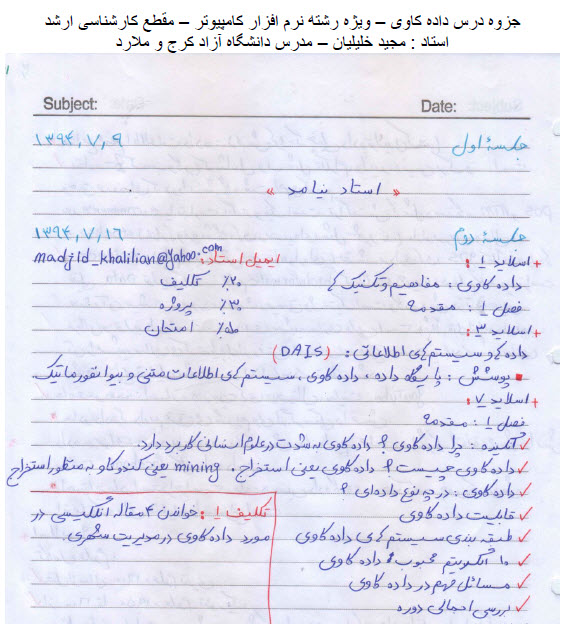 جزوه درس داده کاوی – ویژه رشته نرم افزار کامپیوتر – مقطع کارشناسی ارشد
استاد : مجید خلیلیان – مدرس دانشگاه آزاد کرج و ملارد
Subject: Date:
جلسهٔ اول ۱۳۹۴,۷,۹
« استاد نیامد »
جلسهٔ دوم ۱۳۹۴,۷,۱۶
+ اسلاید ۱ : ایمیل استاد: madjid_khalilian@yahoo.com
داده کاوی : مفاهیم و تکنیک ها ۲۰٪ تکلیف
فصل ۱ : مقدمه ۳۰٪ پروژه
+ اسلاید ۳ : ۵۰٪ امتحان
داده ها و سیستم های اطلاعاتی : (DAIS)
▪ پوشش : پایگاه داده ، داده کاوی ، سیستم های اطلاعات متنی و بیوانفورماتیک
+ اسلاید ۷ :
فصل ۱ : مقدمه
✓ انگیزه : چرا داده کاوی ؟ داده کاوی به شدت در علوم انسانی کاربرد دارد.
✓ داده کاوی چیست ؟ داده کاوی یعنی استخراج . mining یعنی کندوکاو به منظور استخراج
✓ داده کاوی : در چه نوع داده ای ؟
✓ قابلیت داده کاوی
✓ طبقه بندی سیستم های داده کاوی
✓ ۱۰ الگوریتم محبوب داده کاوی
✓ مسائل مهم در داده کاوی
✓ بررسی اجمالی دوره
تکلیف ۱ : خواندن ۴ مقاله انگلیسی در
مورد داده کاوی در مدیریت شهری.